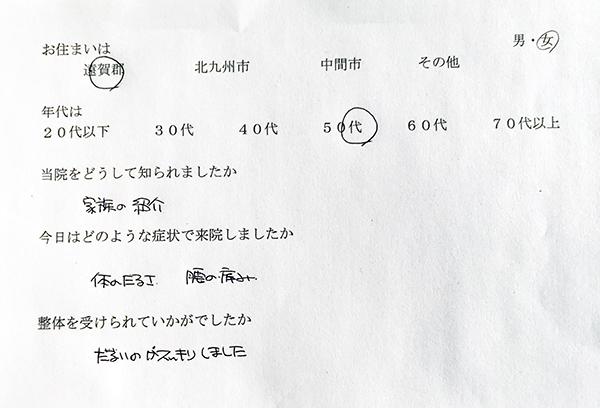 男・女
お住まいは
遠賀郡 北九州市 中間市 その他
年代は
20代以下 30代 40代 50代 60代 70代以上
当院をどうして知られましたか
家族の紹介
今日はどのような症状で来院しましたか
体のだるさ 腰の痛み
整体を受けられていかがでしたか
だるいのがスッキリしました